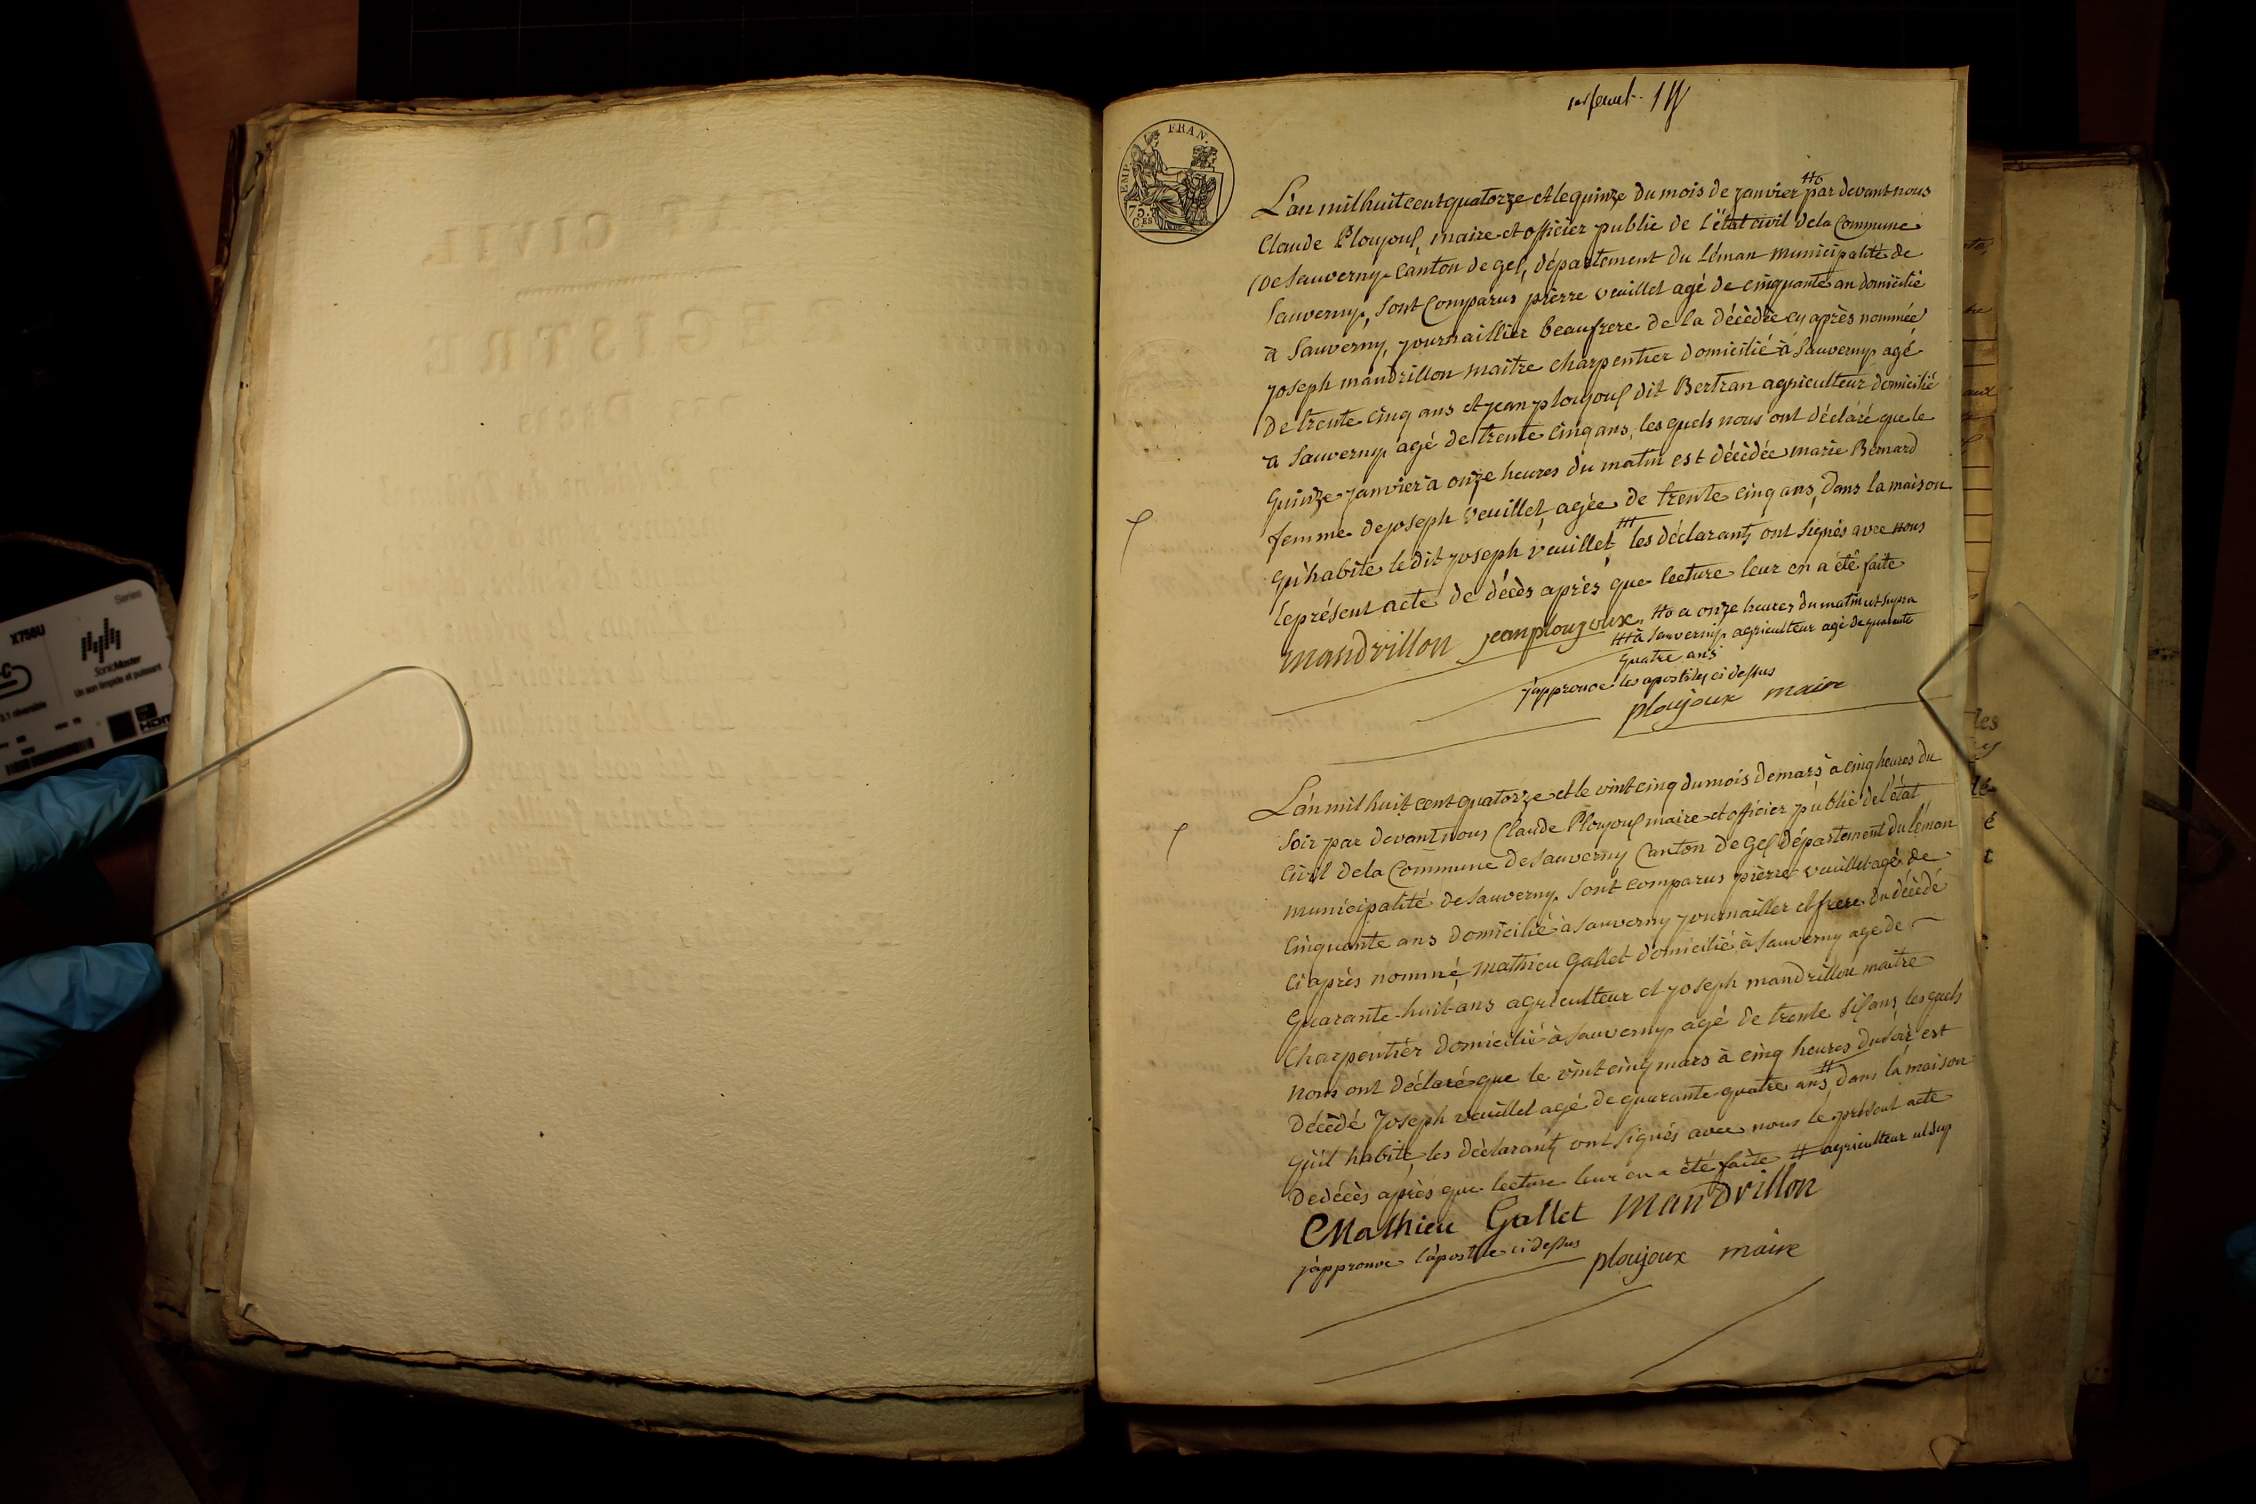 1er feuillet
EMP. FRAN.
75.
C.ES
L'an mil huit cent quatorze et le quinze du mois de janvier #o par devant nous
Claude Ploujoux, maire et officier public de l'état civil de la Commune
de Sauverny Canton de Gex, département du Léman municipalité de
Sauverny, sont comparus pierre veuillet agé de cinquante an domicilié
à Sauverny, journaillier beaufrere de la décèdée cy après nommée
joseph mandrillon maitre charpentier domicilié à Sauverny agé
de trente cinq ans et jean ploujoux dit Bertran agriculteur domicilié
a Sauverny agé de trente cinq ans, les quels nous ont déclaré que le
quinze janvier à onze heures du matin est décèdée marie Bernard
femme de joseph veuillet, agée de trente cinq ans, dans la maison
qu'habite le dit joseph veuillet ### les déclarants ont signés avec nous
le présent acte de décès après que lecture leur en a été faite
mandrillon jean ploujoux. #o a onze heures du matin ut supra
### à Sauverny agriculteur agé de quarante
quatre ans
j'approuve les apostiles ci dessus
ploujoux maire
L'an mil huit cent quatorze et le vint cinq du mois de mars à cinq heures du
soir par devant nous Claude Ploujoux maire et officier public de l'état
civil de la Commune de Sauverny Canton de Gex département du Léman
municipalité de Sauverny. Sont comparus pierre veuillet agé de
cinquante ans domicilié à Sauverny journailler et frere du décèdé
ci après nommé, mathieu Gallet domicilié à Sauverny age de
quarante-huit ans agriculteur et joseph mandrillon maitre
charpentier domicilié à Sauverny agé de trente six ans, les quels
nous ont déclaré que le vint cinq mars à cinq heures du soir est
décèdé Joseph veuillet agé de quarante quatre ans # dans la maison
qu'il habite, les déclarants ont signés avec nous le présent acte
de décès après que lecture leur en a été faite # agriculteur ut sup
Mathieu Gallet mandrillon
j'approuve l'apostile ci dessus ploujoux maire
Series
X756U
SonicMaster
Un son limpide et puissant
HDMI